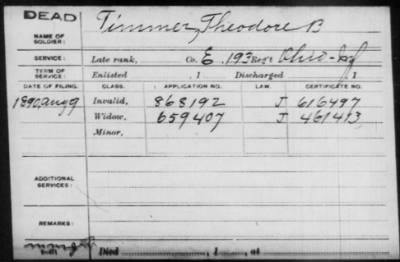 DEAD
NAME OF SOLDIER: Timmer, Theodore B
SERVICE: Late rank, Co. E, 193 Reg't Ohio Inf
TERM OF SERVICE: Enlisted , 1 Discharged 1
DATE OF FILING. CLASS. APPLICATION NO. LAW. CERTIFICATE NO.
1890, Aug 9 Invalid, 868192 J 616497
Widow, 659407 J 461413
Minor,
ADDITIONAL SERVICES:
REMARKS:
Died , 1 , at